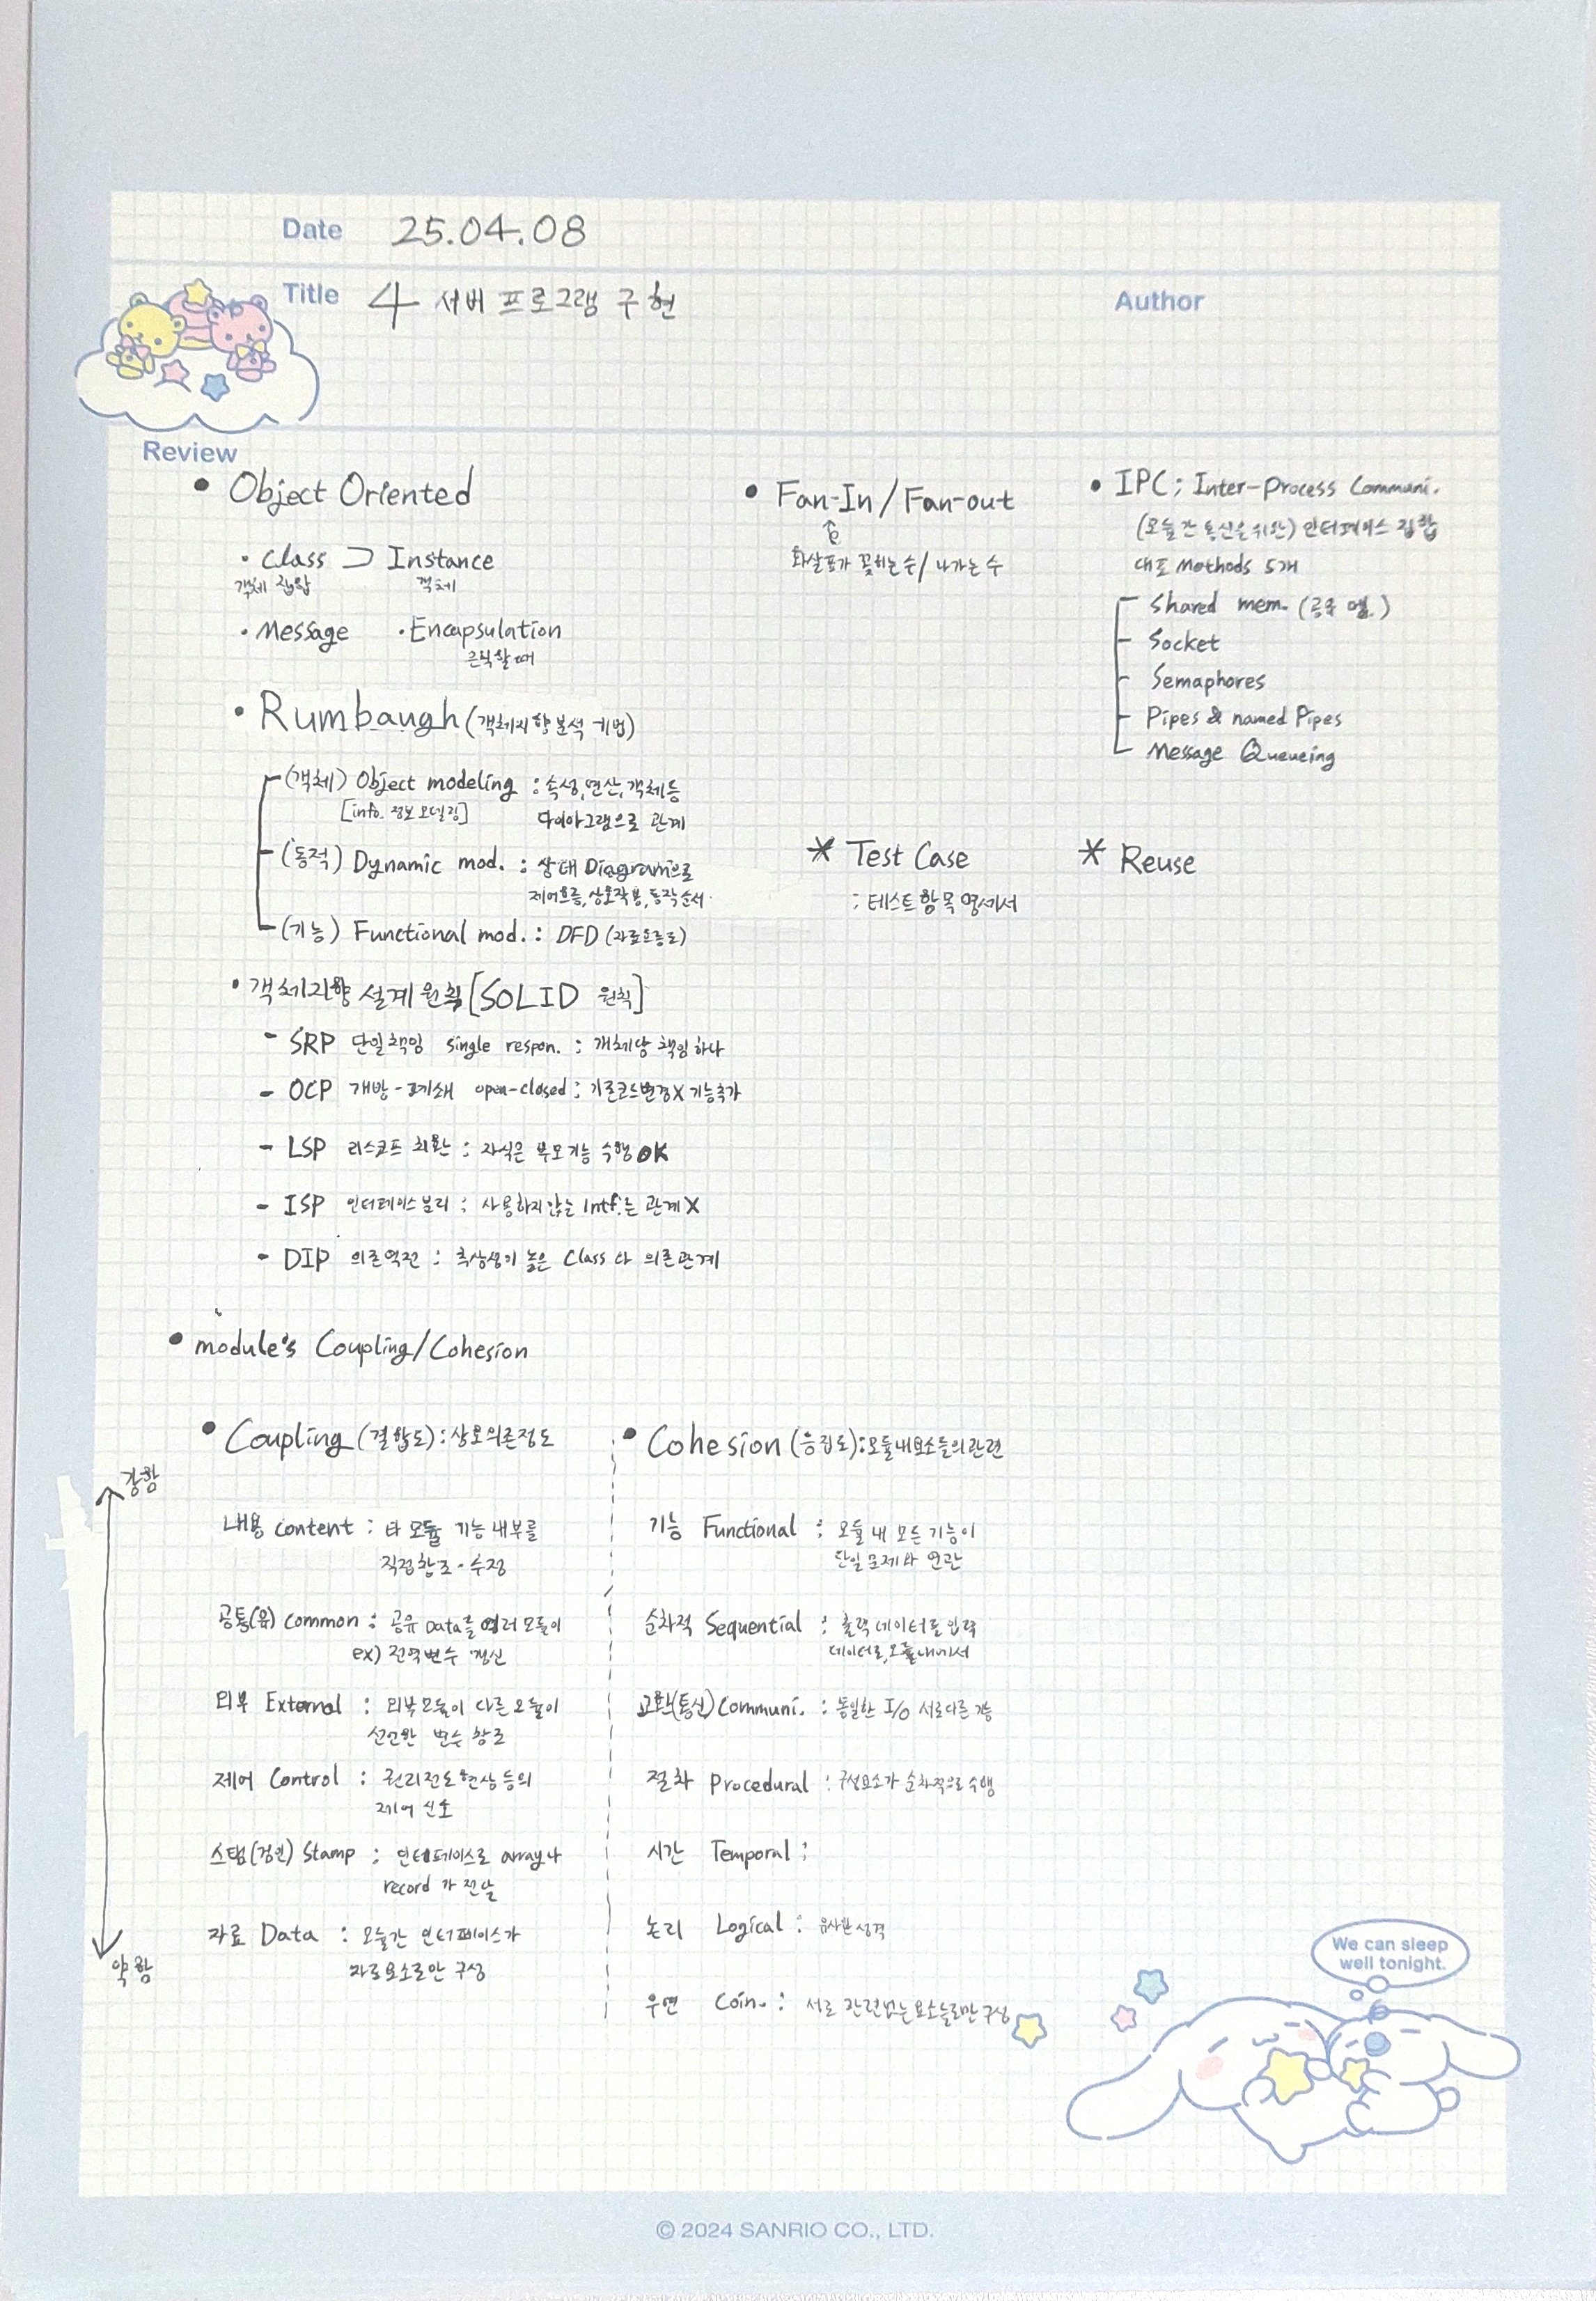 Date 25.04.08
Title 4 서버 프로그램 구현
Author
Review
• Object Oriented
· Class ⊃ Instance
객체 집합 객체
· Message · Encapsulation
은닉할 때
• Rumbaugh (객체지향 분석 기법)
(객체) Object modeling : 속성, 연산, 객체등
[info. 정보 모델링] 다이아그램으로 관계
(동적) Dynamic mod. : 상태 Diagram으로
제어흐름, 상호작용, 동작순서
(기능) Functional mod. : DFD (자료흐름도)
• 객체지향 설계 원칙 [SOLID 원칙]
- SRP 단일책임 single respon. : 객체당 책임 하나
- OCP 개방-폐쇄 open-closed : 기존코드변경X 기능추가
- LSP 리스코프 치환 : 자식은 부모기능 수행 OK
- ISP 인터페이스 분리 : 사용하지 않는 Intf.는 관계 X
- DIP 의존역전 : 추상성이 높은 Class 다 의존관계
• Fan-In / Fan-out
화살표가 꽂히는 수 / 나가는 수
• IPC ; Inter-Process Communi.
(모듈 간 통신을 위한) 인터페이스 집합
대표 Methods 5개
Shared mem. (공유 멤.)
Socket
Semaphores
Pipes & named Pipes
Message Queueing
* Test Case
: 테스트 항목 명세서
* Reuse
• module's Coupling/Cohesion
• Coupling (결합도) : 상호의존정도
강함
내용 content : 타 모듈 기능 내부를
직접참조·수정
공통(유) common : 공유 Data를 여러 모듈이
ex) 전역변수 갱신
외부 External : 외부모듈이 다른 모듈이
선언한 변수 참조
제어 Control : 권리전도현상 등의
제어 신호
스탬(검인) Stamp : 인터페이스로 array나
record 가 전달
자료 Data : 모듈간 인터페이스가
자료요소로만 구성
약함
• Cohesion (응집도) : 모듈내요소들의관련
기능 Functional : 모듈 내 모든 기능이
단일 문제와 연관
순차적 Sequential : 출력 데이터를 입력
데이터로, 모듈내에서
교환(통신) Communi. : 동일한 I/O 서로다른 기능
절차 Procedural : 구성요소가 순차적으로 수행
시간 Temporal :
논리 Logical : 유사한 성격
우연 Coin. : 서로 관련없는 요소들로만 구성
We can sleep
well tonight.
© 2024 SANRIO CO., LTD.